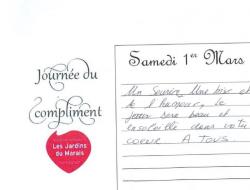 Journée du
compliment
Les Jardins
du Marais
Samedi 1er Mars
Un Sourire Une bise et
de l'humour, le
jour sera beau et
ensoleillé dans votre
coeur A Tous